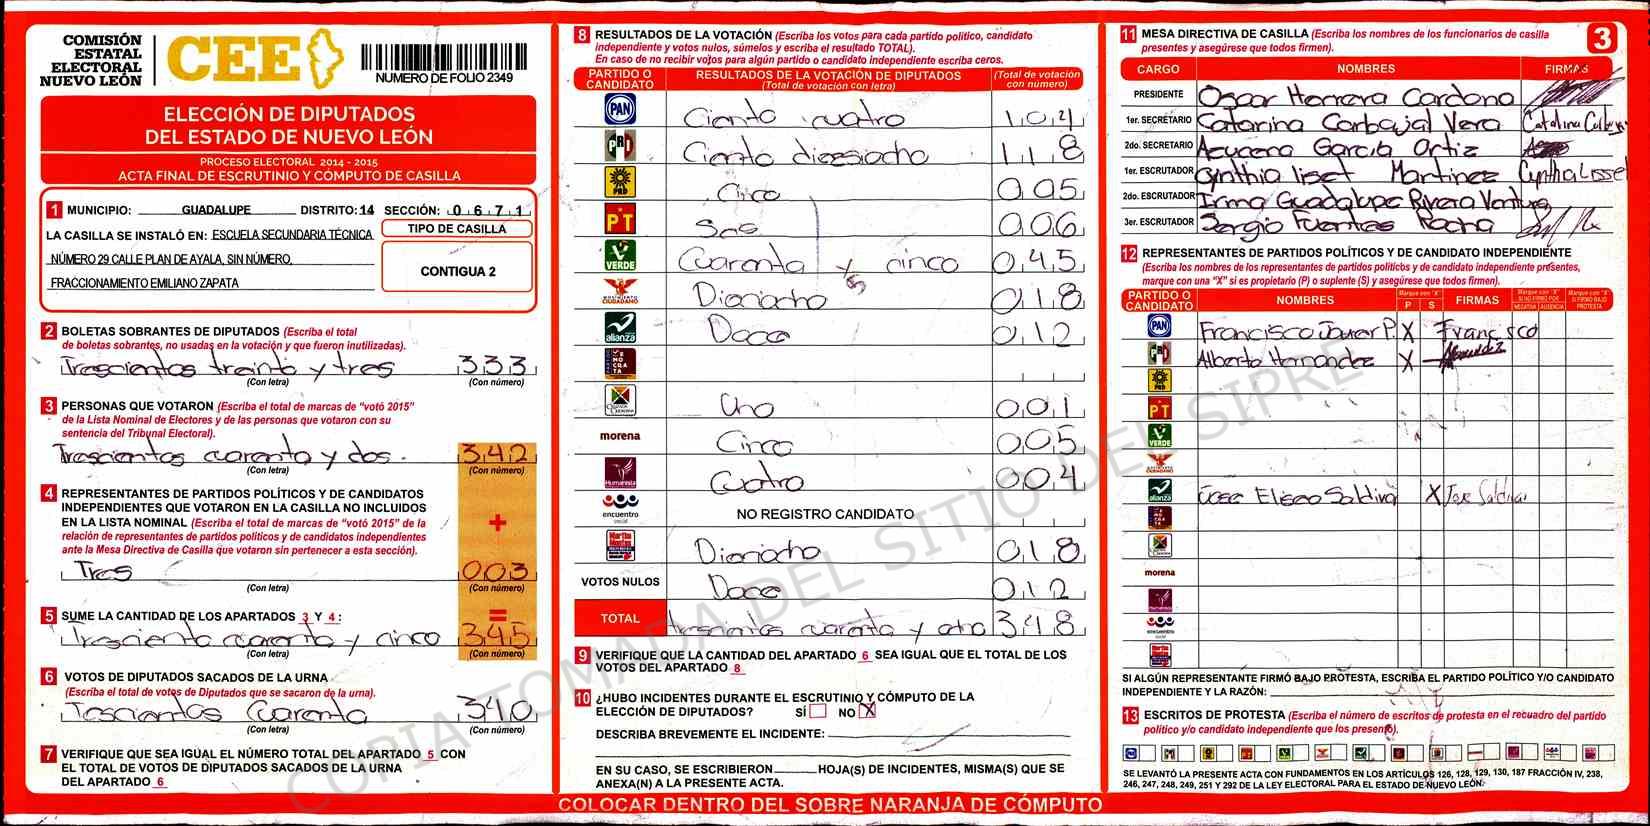 COMISIÓN
ESTATAL
ELECTORAL
NUEVO LEÓN
CEE
NUMERO DE FOLIO 2349
ELECCIÓN DE DIPUTADOS
DEL ESTADO DE NUEVO LEÓN
PROCESO ELECTORAL 2014 - 2015
ACTA FINAL DE ESCRUTINIO Y CÓMPUTO DE CASILLA
1 MUNICIPIO: GUADALUPE DISTRITO: 14 SECCIÓN: 0671
LA CASILLA SE INSTALÓ EN: ESCUELA SECUNDARIA TÉCNICA
NÚMERO 29 CALLE PLAN DE AYALA, SIN NÚMERO,
FRACCIONAMIENTO EMILIANO ZAPATA
TIPO DE CASILLA
CONTIGUA 2
2 BOLETAS SOBRANTES DE DIPUTADOS (Escriba el total
de boletas sobrantes, no usadas en la votación y que fueron inutilizadas).
Trescientos treinta y tres 333
(Con letra) (Con número)
3 PERSONAS QUE VOTARON (Escriba el total de marcas de "votó 2015"
de la Lista Nominal de Electores y de las personas que votaron con su
sentencia del Tribunal Electoral).
Trescientos cuarenta y dos. 342
(Con letra) (Con número)
4 REPRESENTANTES DE PARTIDOS POLÍTICOS Y DE CANDIDATOS
INDEPENDIENTES QUE VOTARON EN LA CASILLA NO INCLUIDOS
EN LA LISTA NOMINAL (Escriba el total de marcas de "votó 2015" de la
relación de representantes de partidos politicos y de candidatos independientes
ante la Mesa Directiva de Casilla que votaron sin pertenecer a esta sección).
+
Tres 003
(Con letra) (Con número)
=
5 SUME LA CANTIDAD DE LOS APARTADOS 3 Y 4:
Tresciento cuarenta y cinco 345
(Con letra) (Con número)
6 VOTOS DE DIPUTADOS SACADOS DE LA URNA
(Escriba el total de votos de Diputados que se sacaron de la urna).
Tescientos Cuarenta 340
(Con letra) (Con número)
7 VERIFIQUE QUE SEA IGUAL EL NÚMERO TOTAL DEL APARTADO 5 CON
EL TOTAL DE VOTOS DE DIPUTADOS SACADOS DE LA URNA
DEL APARTADO 6
8 RESULTADOS DE LA VOTACIÓN (Escriba los votos para cada partido político, candidato
independiente y votos nulos, súmelos y escriba el resultado TOTAL).
En caso de no recibir votos para algún partido o candidato independiente escriba ceros.
PARTIDO O CANDIDATO RESULTADOS DE LA VOTACIÓN DE DIPUTADOS (Total de votación con letra) (Total de votación con número)
PAN Ciento cuatro 104
PRI Ciento dieesiocho 118
PRD Cinco 005
PT Seis 006
VERDE Cuarenta y cinco 045
MOVIMIENTO CIUDADANO Dieciocho 018
alianza Doce 012
Uno 001
morena Cinco 005
Humanista Cuatro 004
encuentro social NO REGISTRO CANDIDATO
Dieciocho 018
VOTOS NULOS Doce 012
TOTAL trescientos cuarenta y ocho 348
9 VERIFIQUE QUE LA CANTIDAD DEL APARTADO 6 SEA IGUAL QUE EL TOTAL DE LOS
VOTOS DEL APARTADO 8
10 ¿HUBO INCIDENTES DURANTE EL ESCRUTINIO Y CÓMPUTO DE LA
ELECCIÓN DE DIPUTADOS? SÍ NO X
DESCRIBA BREVEMENTE EL INCIDENTE:
EN SU CASO, SE ESCRIBIERON HOJA(S) DE INCIDENTES, MISMA(S) QUE SE
ANEXA(N) A LA PRESENTE ACTA.
11 MESA DIRECTIVA DE CASILLA (Escriba los nombres de los funcionarios de casilla
presentes y asegúrese que todos firmen).
3
CARGO NOMBRES FIRMAS
PRESIDENTE Oscar Herrera Cardona
1er. SECRETARIO Catarina Carbajal Vera
2do. SECRETARIO Azucena García Ortiz
1er. ESCRUTADOR Cynthia liset Martinez Cynthia Lisset
2do. ESCRUTADOR Irma Guadalupe Rivera Ventura
3er. ESCRUTADOR Sergio Fuentes Rocha
12 REPRESENTANTES DE PARTIDOS POLÍTICOS Y DE CANDIDATO INDEPENDIENTE
(Escriba los nombres de los representantes de partidos politicos y de candidato independiente presentes,
marque con una "X" si es propietario (P) o suplente (S) y asegúrese que todos firmen).
PARTIDO O CANDIDATO NOMBRES Marque con "X" P S FIRMAS Marque con "X" SI NO FIRMÓ POR NEGATIVA AUSENCIA Marque con "X" SI FIRMÓ BAJO PROTESTA
PAN Francisco Javier P. X Francisco
PRI Alberto Hernandez X
PRD
PT
VERDE
alianza Jose Eliseo Saldivar X Jose Saldivar
morena
encuentro social
SI ALGÚN REPRESENTANTE FIRMÓ BAJO PROTESTA, ESCRIBA EL PARTIDO POLÍTICO Y/O CANDIDATO
INDEPENDIENTE Y LA RAZÓN:
13 ESCRITOS DE PROTESTA (Escriba el número de escritos de protesta en el recuadro del partido
político y/o candidato independiente que los presentó).
SE LEVANTÓ LA PRESENTE ACTA CON FUNDAMENTOS EN LOS ARTÍCULOS 126, 128, 129, 130, 187 FRACCIÓN IV, 238,
246, 247, 248, 249, 251 Y 292 DE LA LEY ELECTORAL PARA EL ESTADO DE NUEVO LEÓN.
COLOCAR DENTRO DEL SOBRE NARANJA DE CÓMPUTO
COPIA TOMADA DEL SITIO DEL SIPRE